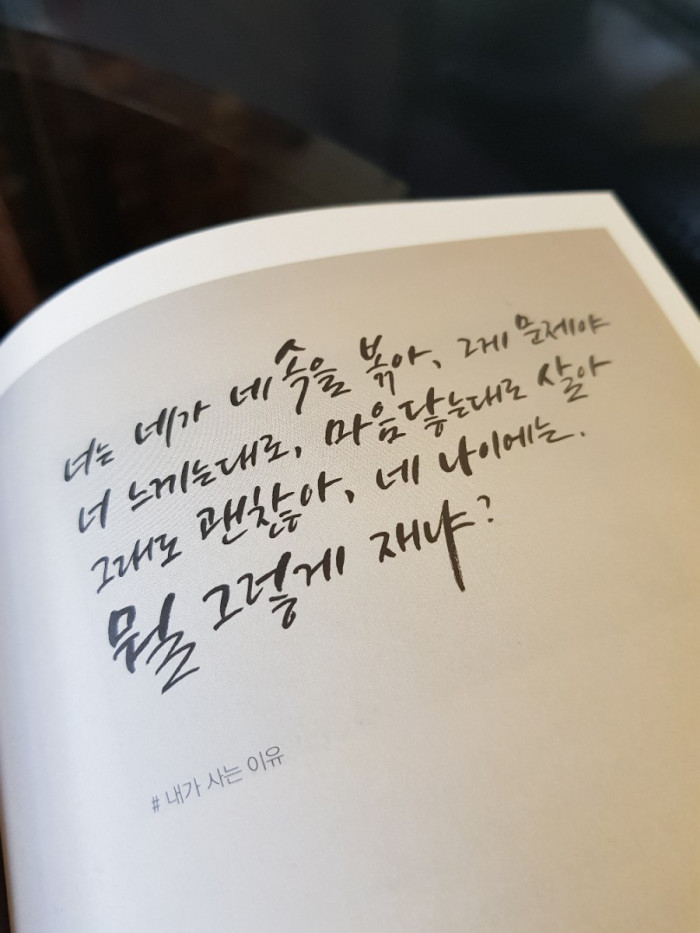 너는 네가 네 속을 볶아, 그게 문제야
너 느끼는대로, 마음닿는대로 살아
그래도 괜찮아, 네 나이에는.
뭘 그렇게 재냐?
# 내가 사는 이유